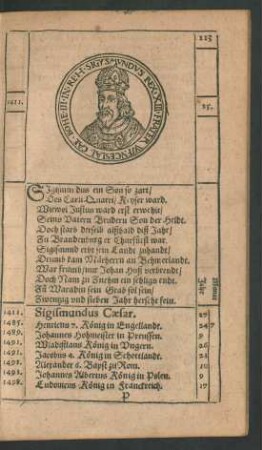 115
1411.
15.
SIgismundus ein Son so zart/
Des Carli Quarti/ Keyser ward.
Wiewol Justus ward erst erwehlt/
Seins Vatern Brudern Son der Heldt.
Doch starb derselb alßbald diß Jahr/
Zu Brandenburg er Churfürst war.
Sigismund erbt sein Lande zuhandt/
Drumb kam Märherrn an Behmerlandt.
War frumb/nur Johan Huß verbrendt/
Doch Nam zu Znehm ein seligs endt.
Zu Waradin sein Grab sol sein/
Zwentzig und sieben Jahr herscht sein.
Jahr
Monat
1411. Sigismundus Cæsar. 27
1485. Henricus 7. König in Engellandt. 24 7
1489. Johannes Hohmeister in Preussen. 9
1491. Wladislaus König in Ungern. 26
1491. Jacobus 4. König in Schottlandt. 25
Alexander 6. Bapst zu Rom. 10
1492. Johannes Albertus König in Polen. 9
1498. Ludovicus König in Franckreich. 17
P